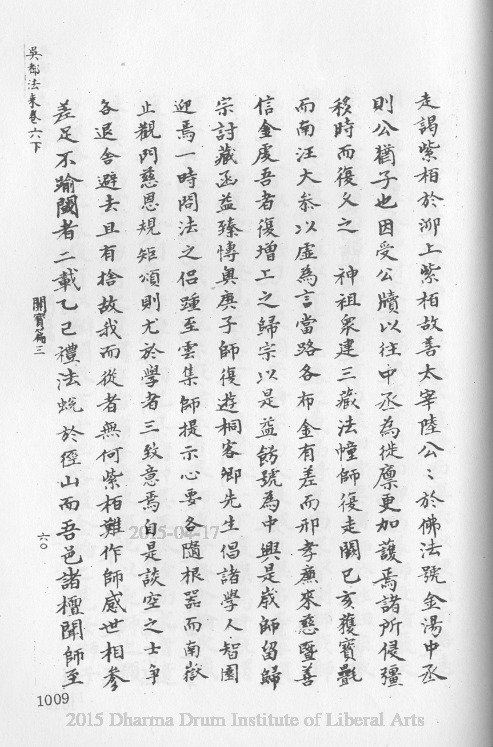 走謁紫柏於泖上紫柏故善太宰陸公〻於佛法號金湯中丞
則公猶子也因受公牘以往中丞為徙廩更加護焉諸所侵彊
移時而復久之　神祖眾建三藏法幢師復走闕己亥獲寶㲲
而南汪大叅以虛為言當路各布金有差而邢孝廉來慈暨善
信金虔吾者復增工之歸宗以是益飭號為中興是歲師留歸
宗討藏函益臻博奧庚子師復遊桐客卿先生倡諸學人智園
迎焉一時問法之侶踵至雲集師提示心要各隨根器而南嶽
止觀門慈恩規矩頌則尤於學者三致意焉自是談空之士爭
各退舍避去且有捨故我而從者無何紫柏難作師感世相參
差足不踰閫者二載乙巳禮法蛻於徑山而吾邑諸檀聞師至
吳都法乘卷六下
開寶篇三
六〇
1009
2015-04-17
2015 Dharma Drum Institute of Liberal Arts